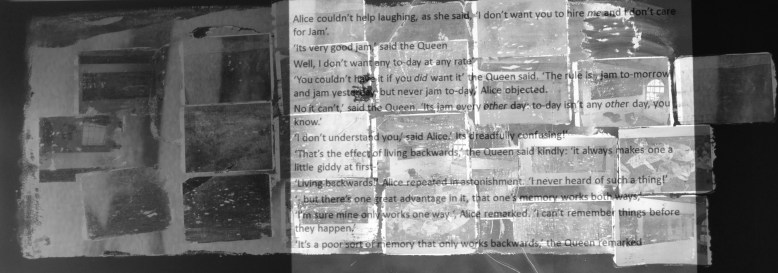 Alice couldn't help laughing, as she said, 'I don't want you to hire me and I don't care
for Jam'.
'Its very good jam,' said the Queen
Well, I don't want any to-day at any rate'
'You couldn't have it if you did want it' the Queen said. 'The rule is, jam to-morrow
and jam yesterday but never jam to-day,' Alice objected.
No it can't,' said the Queen. 'Its jam every other day: to-day isn't any other day, you
know.'
'I don't understand you,' said Alice.' Its dreadfully confusing!'
'That's the effect of living backwards,' the Queen said kindly: 'it always makes one a
little giddy at first-'
'Living backwards'! Alice repeated in astonishment. 'I never heard of such a thing!'
'- but there's one great advantage in it, that one's memory works both ways,'
'I'm sure mine only works one way', Alice remarked. 'I can't remember things before
they happen.'
'It's a poor sort of memory that only works backwards,' the Queen remarked